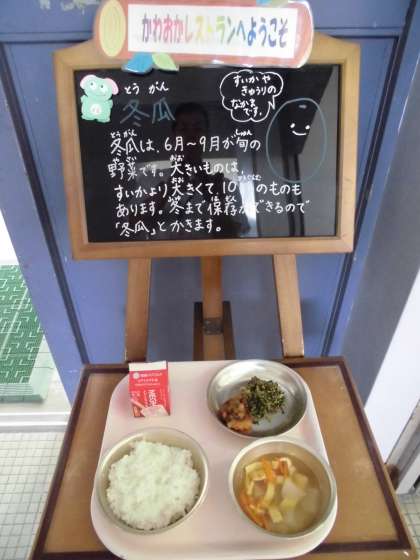 かわおかレストランへようこそ
とうがん
冬瓜
すいかや
きゅうりの
なかま
です。
とうがん しゅん
冬瓜は、6月～9月が旬の
やさい おお
野菜です。大きいものは、
おお
すいかより大きくて、10 のものも
ふゆ ほぞん
あります。冬まで保存ができるので
「冬瓜」とかきます。